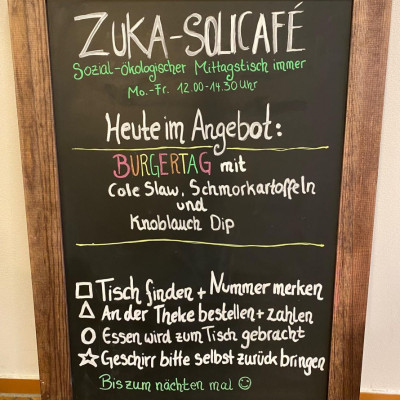 ZUKA-SOLICAFÉ
Sozial-ökologischer Mittagstisch immer
Mo.-Fr. 12.00-14.30 Uhr
Heute im Angebot:
BURGERTAG mit
Cole Slaw, Schmorkartoffeln
und
Knoblauch Dip
Tisch finden + Nummer merken
An der Theke bestellen + zahlen
Essen wird zum Tisch gebracht
Geschirr bitte selbst zurück bringen
Bis zum nächten mal ☺